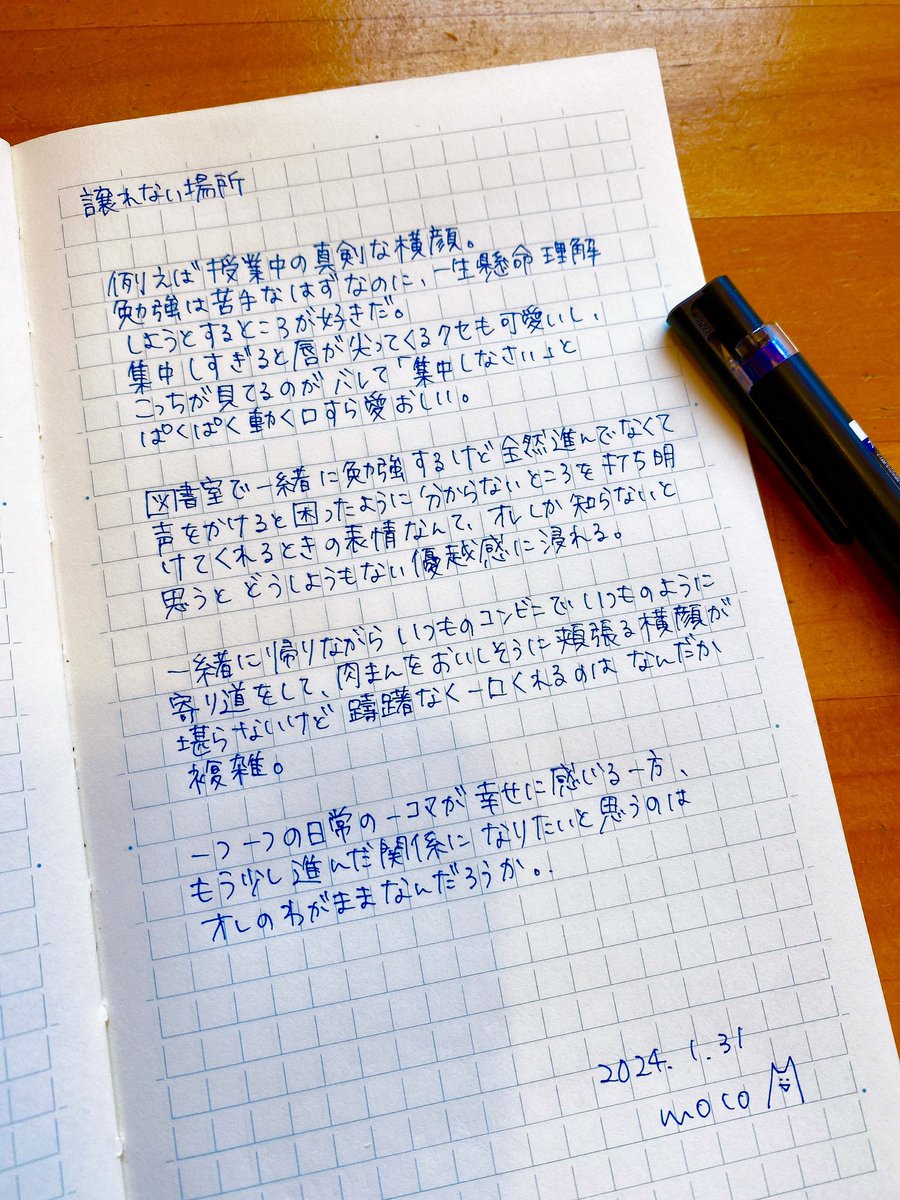 譲れない場所
例えば授業中の真剣な横顔。
勉強は苦手なはずなのに、一生懸命理解
しようとするところが好きだ。
集中しすぎると唇が尖ってくるクセも可愛いし、
こっちが見てるのがバレて「集中しなさい」と
ぱくぱく動く口すら愛おしい。
図書室で一緒に勉強するけど全然進んでなくて
声をかけると困ったように分からないところを打ち明
けてくれるときの表情なんて、オレしか知らないと
思うとどうしようもない優越感に浸れる。
一緒に帰りながらいつものコンビニでいつものように
寄り道をして、肉まんをおいしそうに頬張る横顔が
堪らないけど躊躇なく一口くれるのはなんだか
複雑。
一つ一つの日常の一コマが幸せに感じる一方、
もう少し進んだ関係になりたいと思うのは
オレのわがままなんだろうか。
2024.1.31
moco